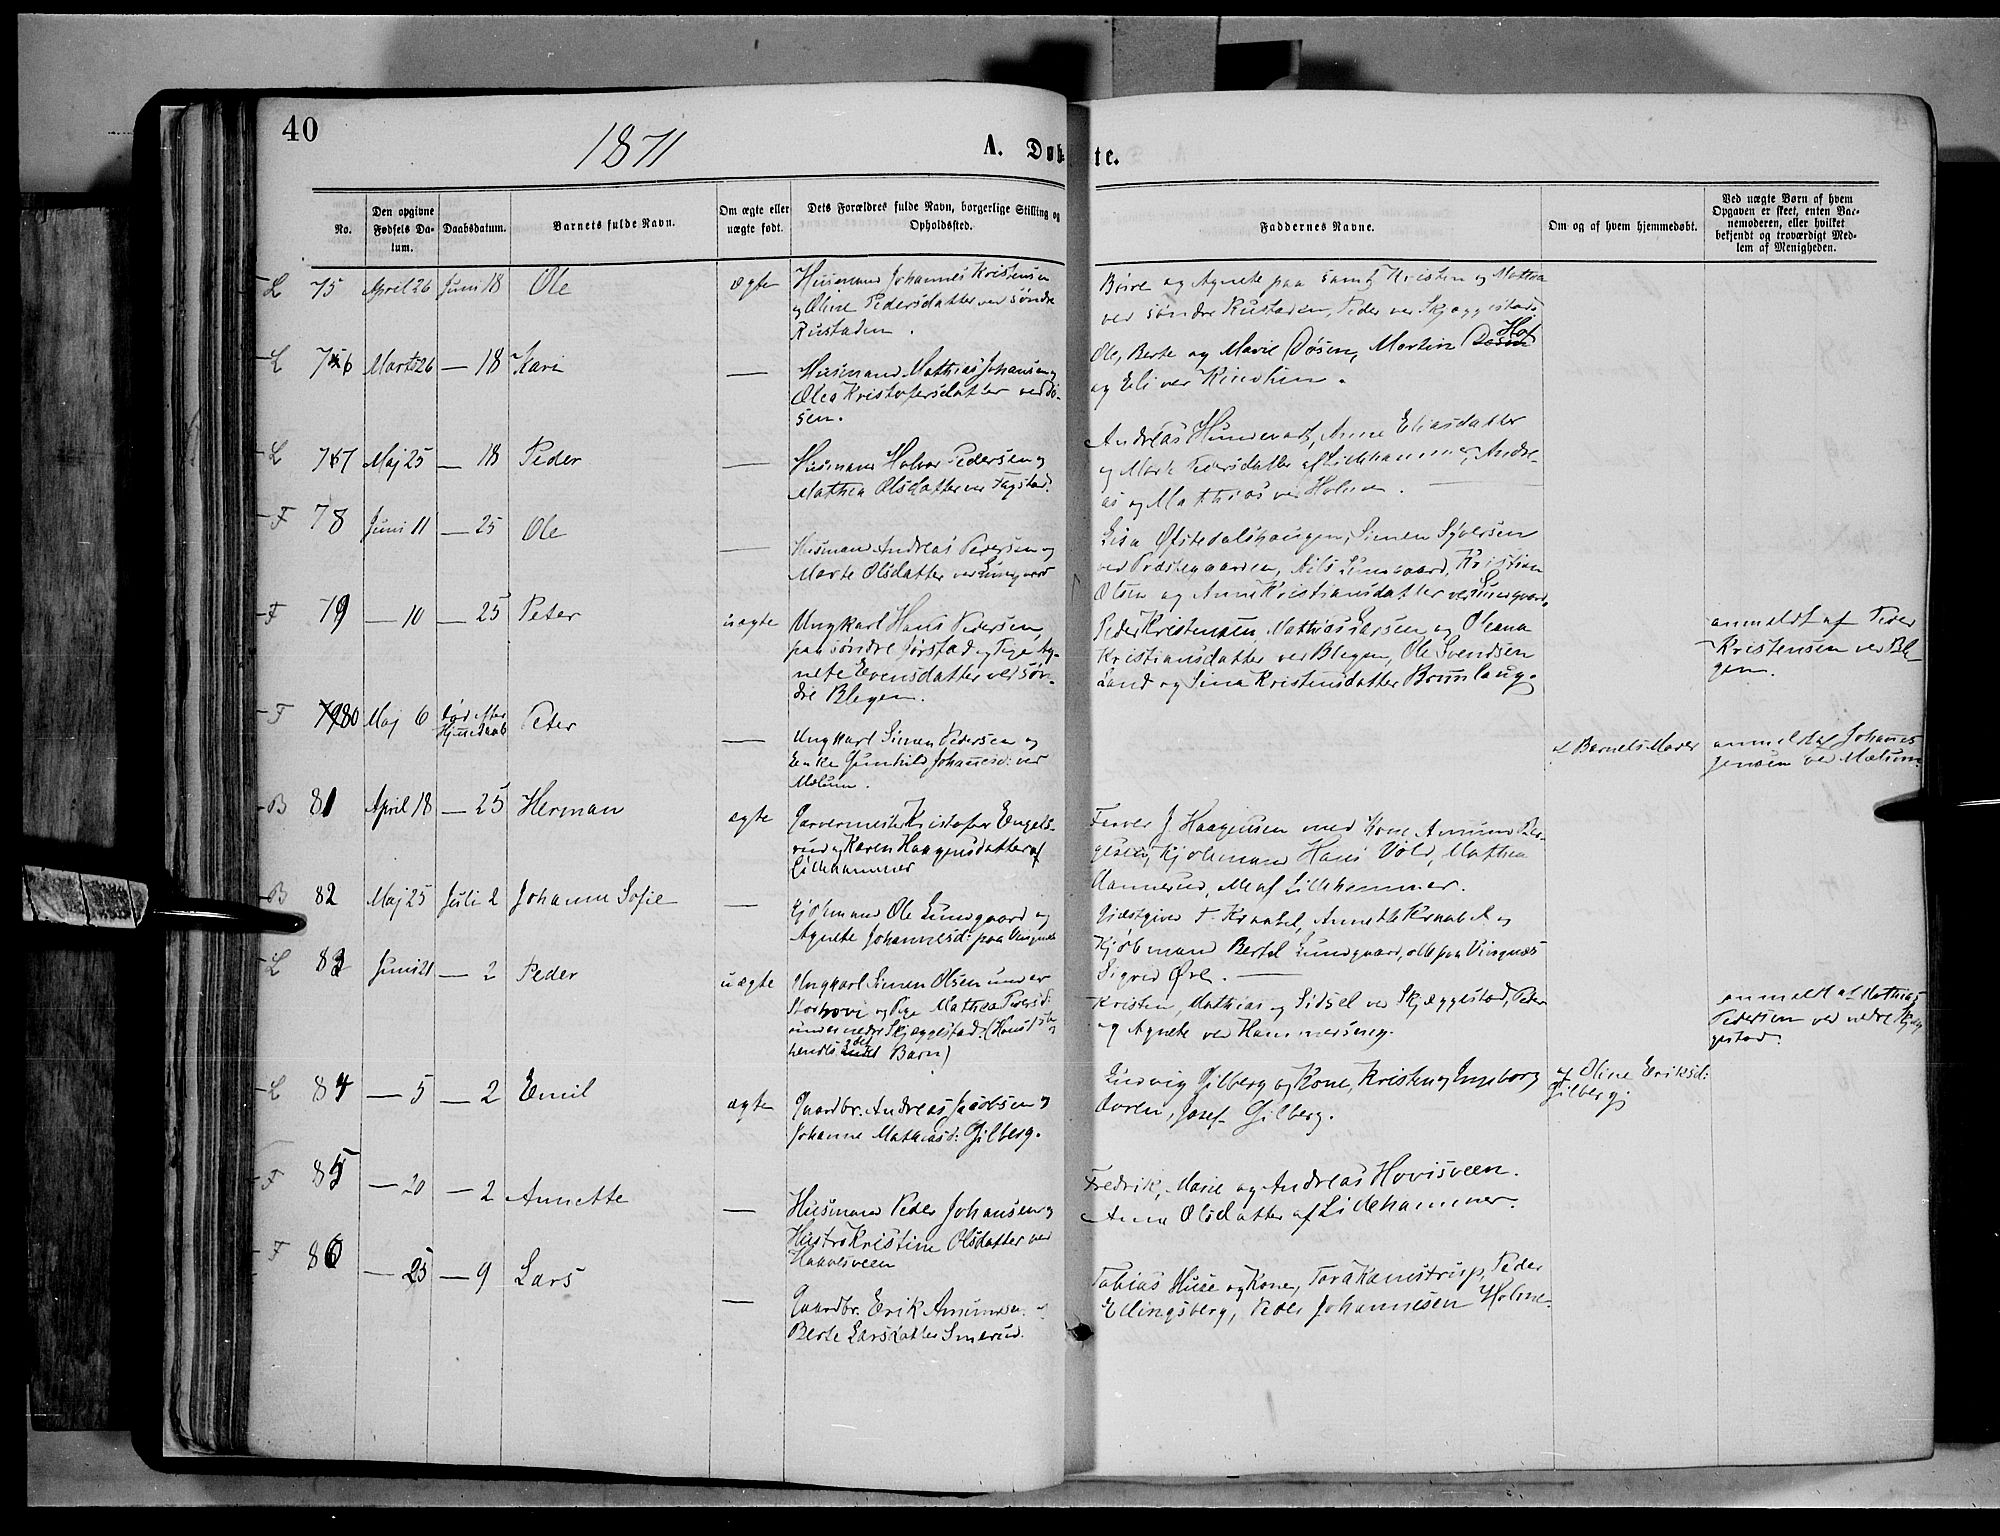 40
1871
A. Døbte.
No.
Den opgivne Fødsels Da-
tum.
Daabsdatum.
Barnets fulde Navn.
Om ægte eller
uægte født.
Dets Forældres fulde Navn, borgerlige Stilling og
Opholdssted.
Faddernes Navne.
Om og af hvem hjemmedøbt.
Ved uægte Børn af hvem
Opgaven er skeet, enten Bar-
nemoderen, eller hvilket
bekjendt og troværdigt Med-
lem af Menigheden.
L 75 April 26 Juni 18 Ole ægte
Husmand Johannes Kristensen
og Oline Pedersdatter ved søndre
Rustaden.
og Agnete paa samt Kristen og Mathea
ved søndre Rustaden, Peder ved Skjæggestad.
L 76 Marts 26 — 18 Kari —
Husmand Mathias Johansen og
Olea Kristofersdatter ved Dø-
sen.
Hof
Ole, Berte og Marie Døsen, Martin Døsen
og Eli ved
L 77 Maj 25 — 18 Peder —
Husmand Halvor Pedersen og
Mathea Olsdatter ved Fagstad.
Andreas Anne Eliasdatter
og Marte Pedersdatter af Lillehammer, Andre-
as og Mathias ved Holmen. —
F 78 Juni 11 — 25 Ole —
Husmand Andreas Pedersen og
Marte Olsdatter ved Lundgaard
Lisa Ofstedalshaugen, Simen Syversen
ved Præstegaarden, Nils Lundgaard, Kristian
Olsen og Anne Kristiansdatter ved Lundgaard.
F 79 — 10 — 25 Peter uægte
Ungkarl Hans Pedersen
paa søndre Jørstad og Pige Ag-
nete Evensdatter ved søn-
dre Blegen.
Peder Kristensen, Mathias Larsen og Oleana
Kristiansdatter ved Blegen, Ole Svendsen
Land og Sina Kristensdatter Brunlaug.
anmeldt af Peder
Kristensen ved Ble-
gen.
F 80 Maj 6 død efter
Hjemdaab Peter —
Ungkarl Simen Pedersen og
Enke Gunhild Johannesd: ved
Mælum.
af Barnets Moder
anmeldt af Johannes
Jensen ved Mælum.
B 81 April 18 — 25 Herman ægte
Garvermester Kristofer Engels-
rud og Karen Haagensdatter af
Lillehammer
Farver J. Haagensen med Kone, Amund Bør-
gesen, Kjøbmand Hans Vold, Mathea
Hannerud, alle af Lillehammer.
B 82 Maj 25 Juli 2 Johanne Sofie —
Kjøbmand Ole Lundgaard og
Agnete Johannesd: paa Vingnes
Gjæstgiver F. Kraabel, Annette Kraabel og
Kjøbmand Bertel Lundgaard, alle paa Vingnæs
Sigrid Øvl. —
L 83 Juni 21 — 2 Peder uægte
Ungkarl Simen Olsen under
Storhove og Pige Mathea Pedersd:
under nedre Skjæggestad. (Hans 1ste og
hendes 2det Barn)
Kristen, Mathias og Sidsel ved Skjæggestad, Peder
og Agnete ved Hammerseng.
anmeldt af Mathias
Pedersen ved nedre Skjæg-
gestad.
L 84 — 5 — 2 Emil ægte
Gaardbr. Andreas Jacobsen og
Johanne Mathiasd: Gilberg.
Ludvig Gilberg og Kone, Kristen og Ingeborg
Josef Gilberg.
af Oline Eriksd:
Gilberg.
F 85 — 20 — 2 Annette —
Husmand Peder Johansen og
Hustro Kristine Olsdatter ved
Haavesveen
Fredrik, Marie og Andreas Hovisveen.
Anne Olsdatter af Lillehammer.
F 86 — 25 — 9 Lars —
Gaardbr. Erik Amundsen og
Berte Larsdatter Smerud.
Tobias Huse og Kone, Tora Kamstrup, Peder
Ellingsberg, Peder Johannesen Holme.